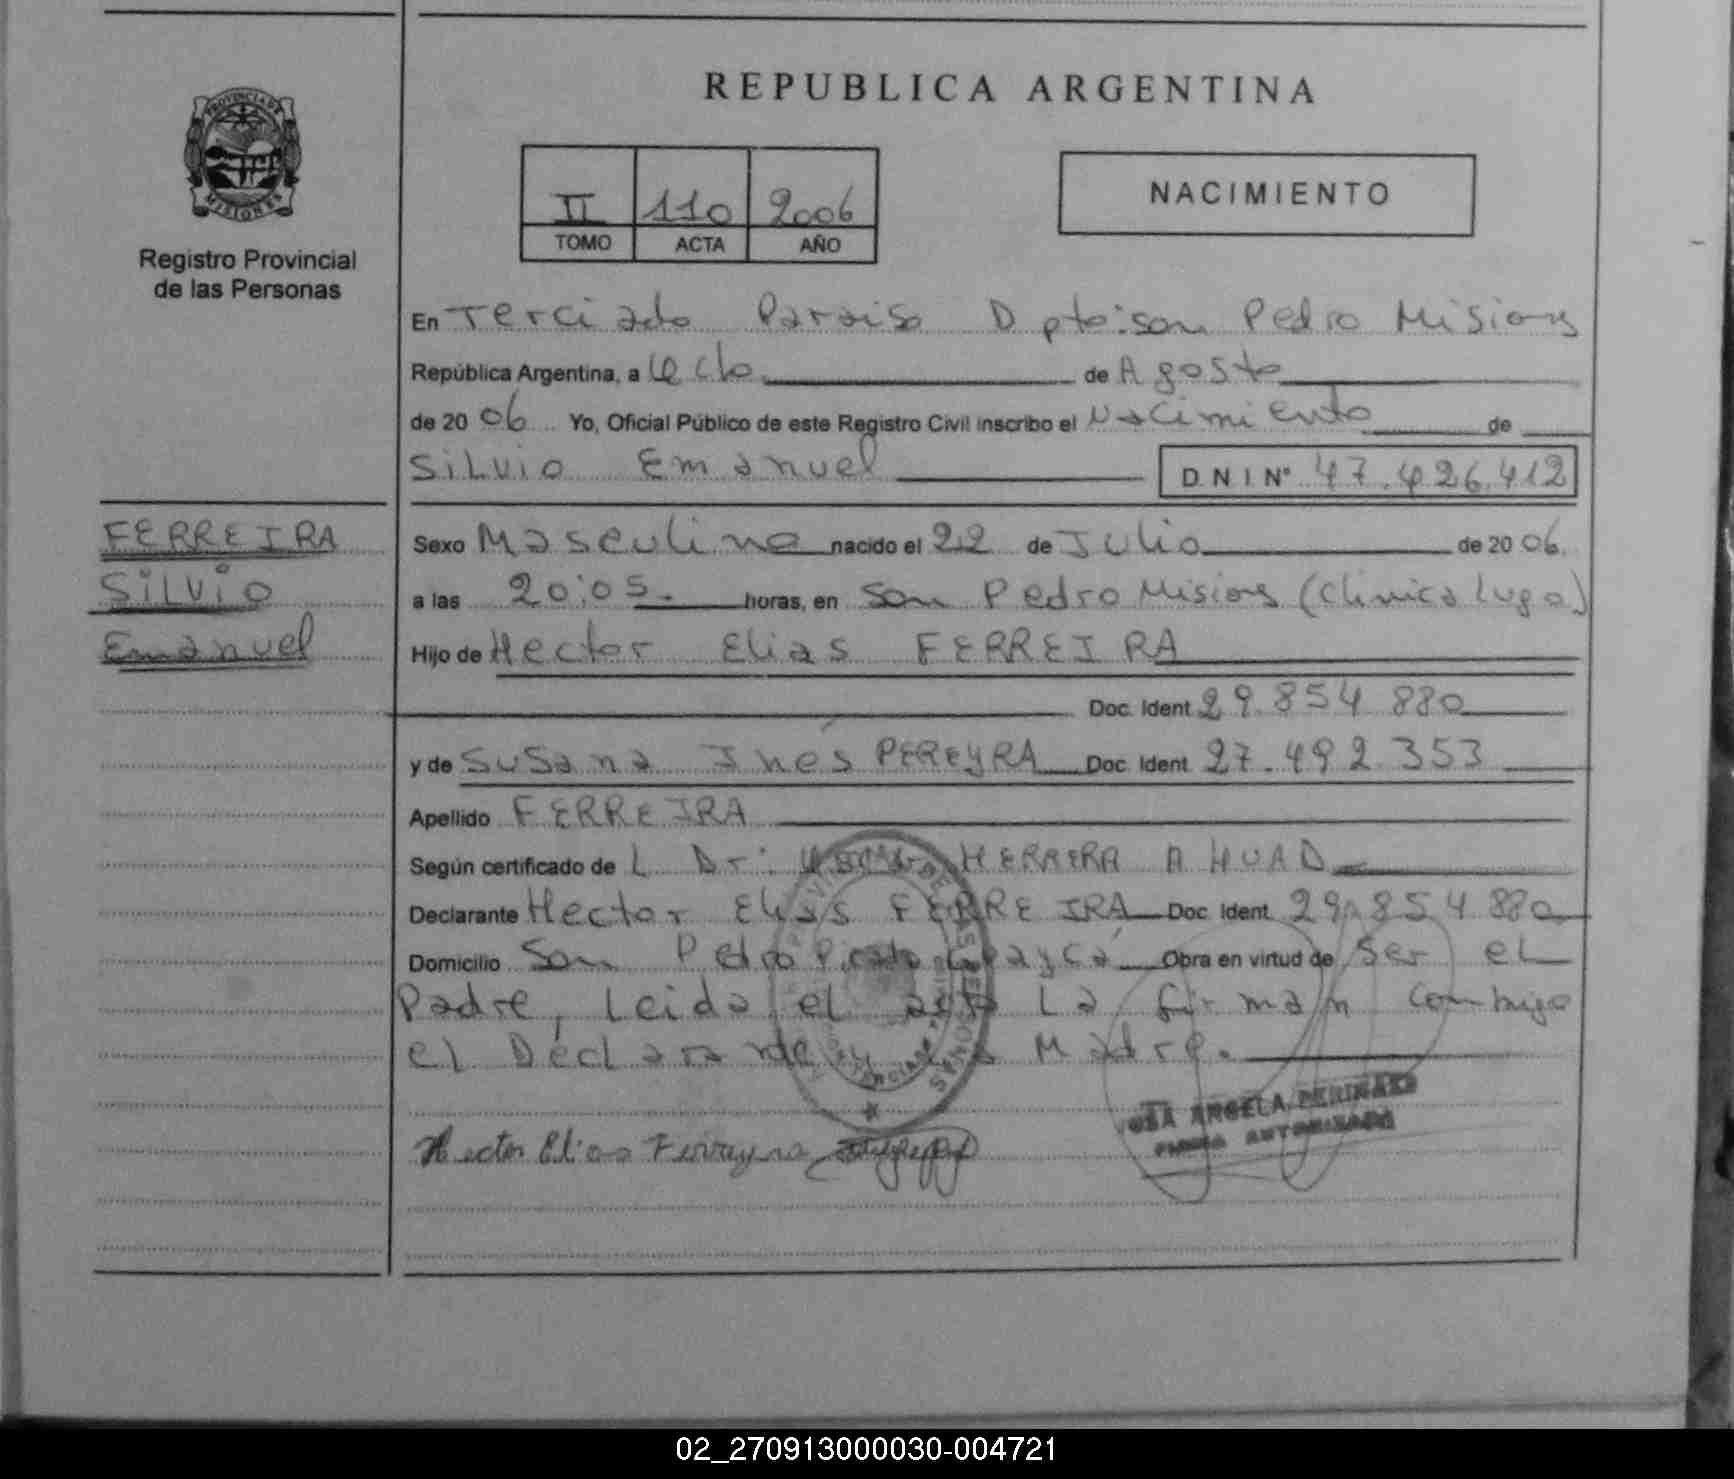 REPUBLICA ARGENTINA
PROVINCIA DE
MISIONES
Registro Provincial
de las Personas
II 110 2006
TOMO ACTA AÑO
NACIMIENTO
En Terciado Paraiso Dpto: San Pedro Misiones
República Argentina, a Ocho de Agosto
de 20 06 Yo, Oficial Público de este Registro Civil inscribo el Nacimiento de
Silvio Emanuel DNI Nº 47.426.412
FERREIRA
Silvio
Emanuel
Sexo Masculino nacido el 22 de Julio de 20 06.
a las 20:05. horas, en San Pedro Misiones (Clinica Lugo)
Hijo de Hector Elias FERREIRA
Doc. Ident 29.854.880
y de Susana Inés PEREYRA Doc. Ident. 27.492.353
Apellido FERREIRA
Según certificado de L Dr: HERRERA AHUAD
Declarante Hector Elias FERREIRA Doc. Ident. 29.854.880
Domicilio San Pedro Obra en virtud de Ser el
Padre, Leida el acta La firman Conmigo
el Declarante y la Madre.
Hector Elias Ferreyra
ANGELA
FIRMA AUTORIZADA
02_270913000030-004721